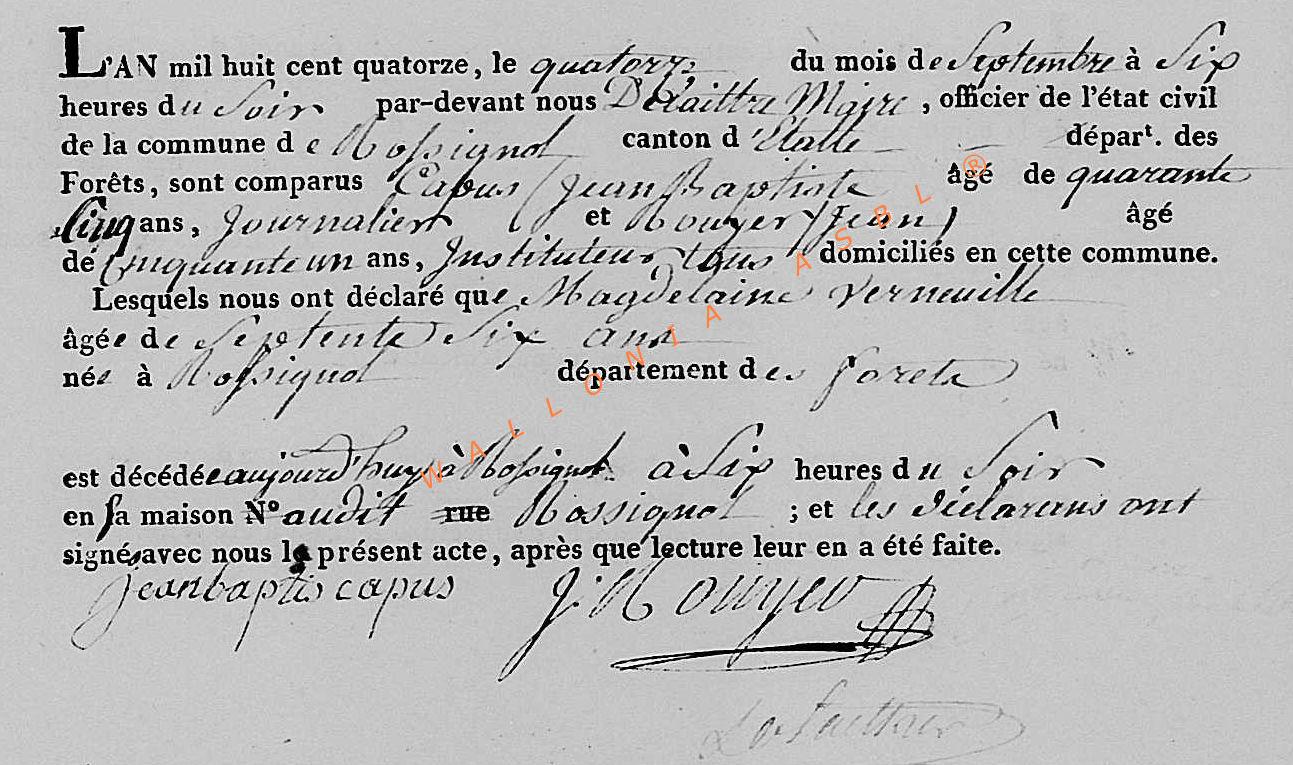 L'AN mil huit cent quatorze, le quatorze du mois de Septembre à Six
heures du Soir par-devant nous Delaittre Maire, officier de l'état civil
de la commune de Rossignol canton d'Etalle départ. des
Forêts, sont comparus Capus (Jean Baptiste âgé de quarante
Cinq ans, Journalier et Rouyer (Jean) âgé
de Cinquante un ans, Instituteur tous domiciliés en cette commune.
Lesquels nous ont déclaré que Magdelaine Verneuille
âgée de Septente Six ans
née à Rossignol département des forets
est décédée aujourd'huy à Rossignol à Six heures du Soir
en sa maison N° audit rue Rossignol ; et les déclarans ont
signés avec nous le présent acte, après que lecture leur en a été faite.
jean baptis capus J. Rouyer
Delaittre
WALLONIA ASBL ®